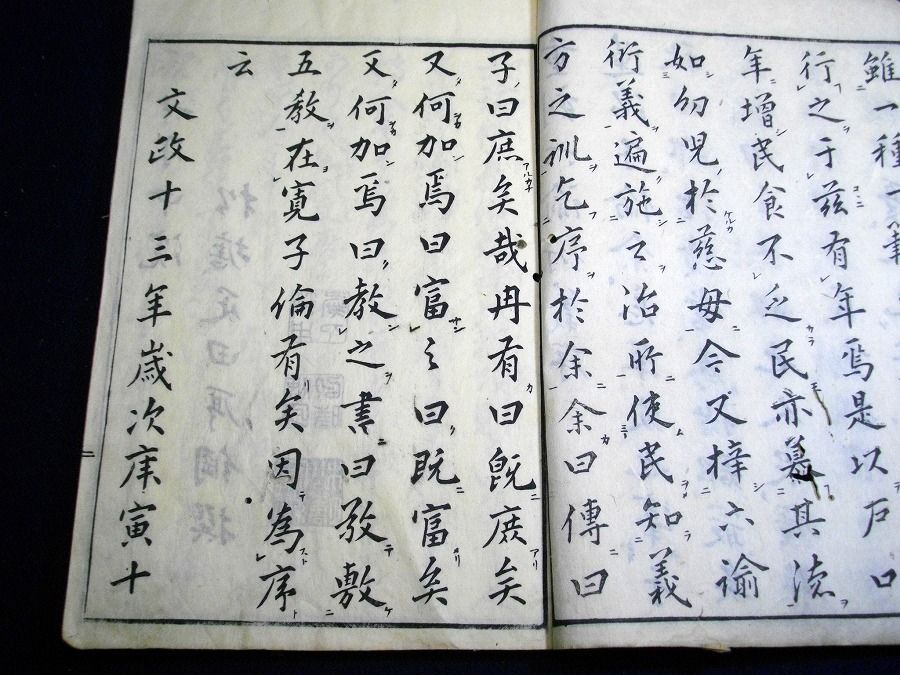 雖一種一
行之于茲有年焉是以戶口
年增民食不乏民亦慕其徳
如勿児於慈母今又梓六諭
衍義遍施之治所使民知義
方之訓乞序於余余曰傳曰
子曰庶矣哉冉有曰既庶矣
又何加焉曰富之曰既富矣
又何加焉曰教之書曰敬敷
五教在寛子倫有矣因為序
云
文政十三年歳次庚寅十